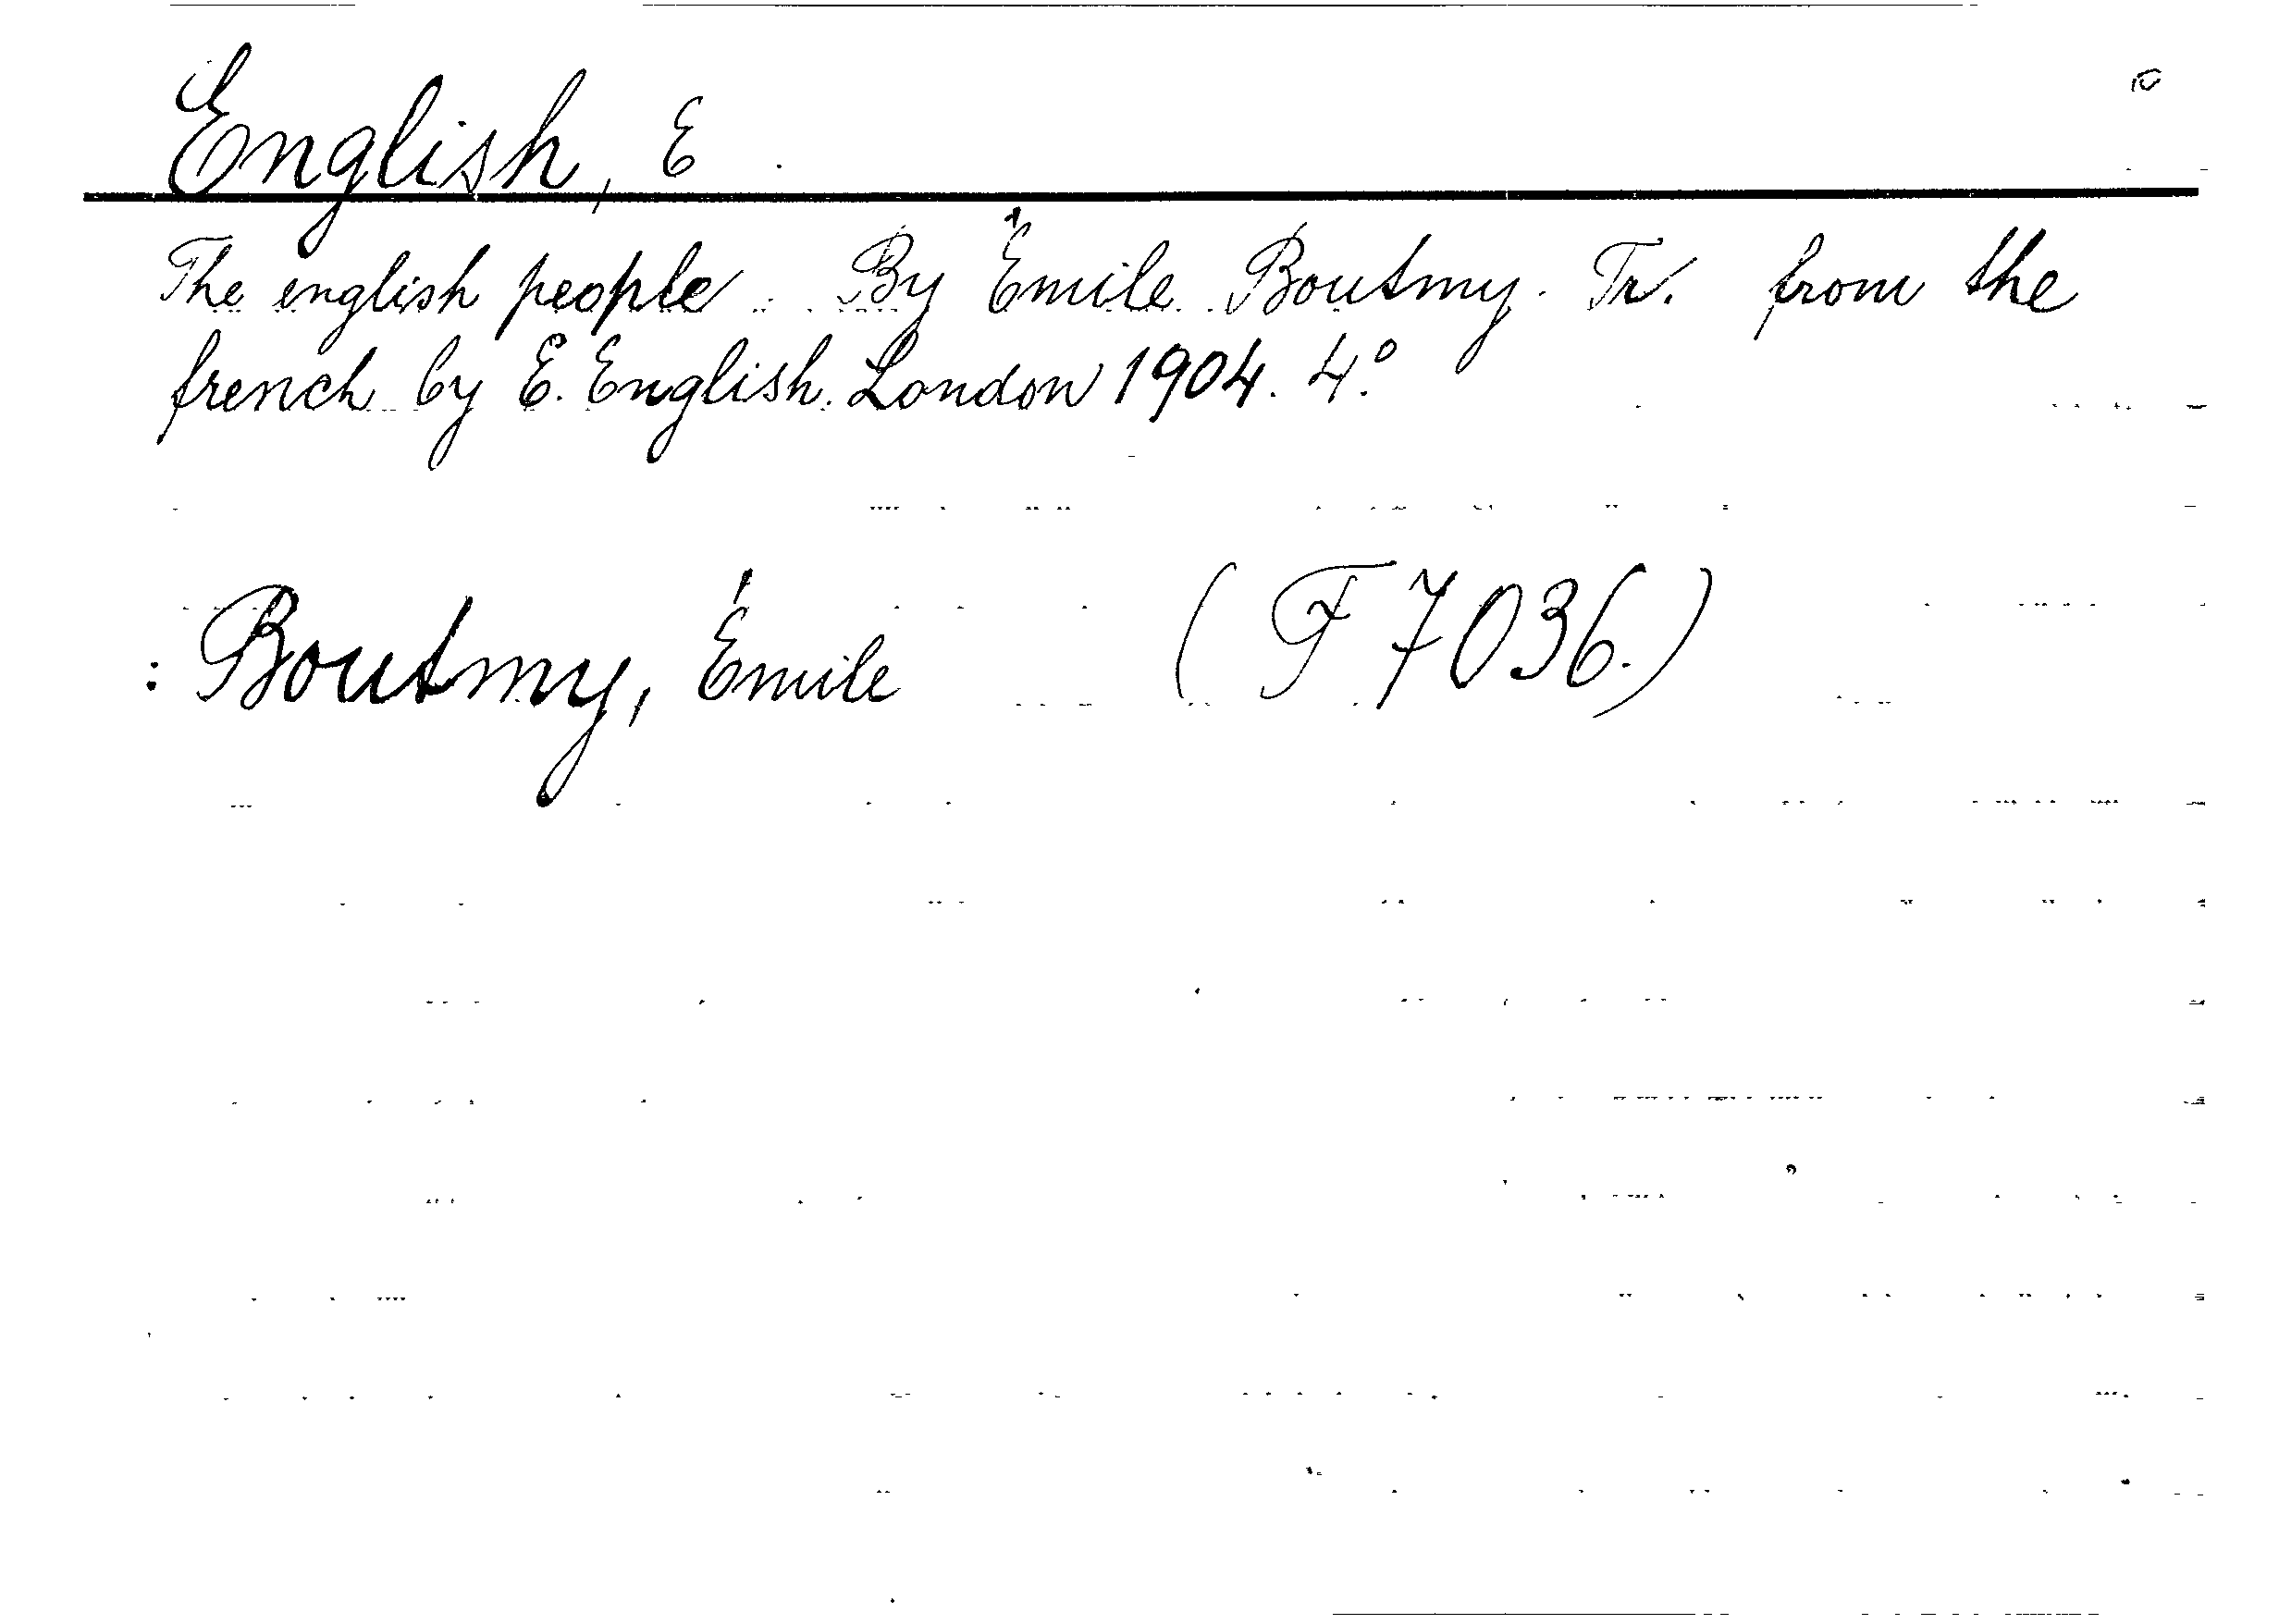 English, E.
The english people. By Émile Boutmy. Tr. from the
french by E. English. London 1904. 4.º
: Boutmy, Émile (F 7036.)